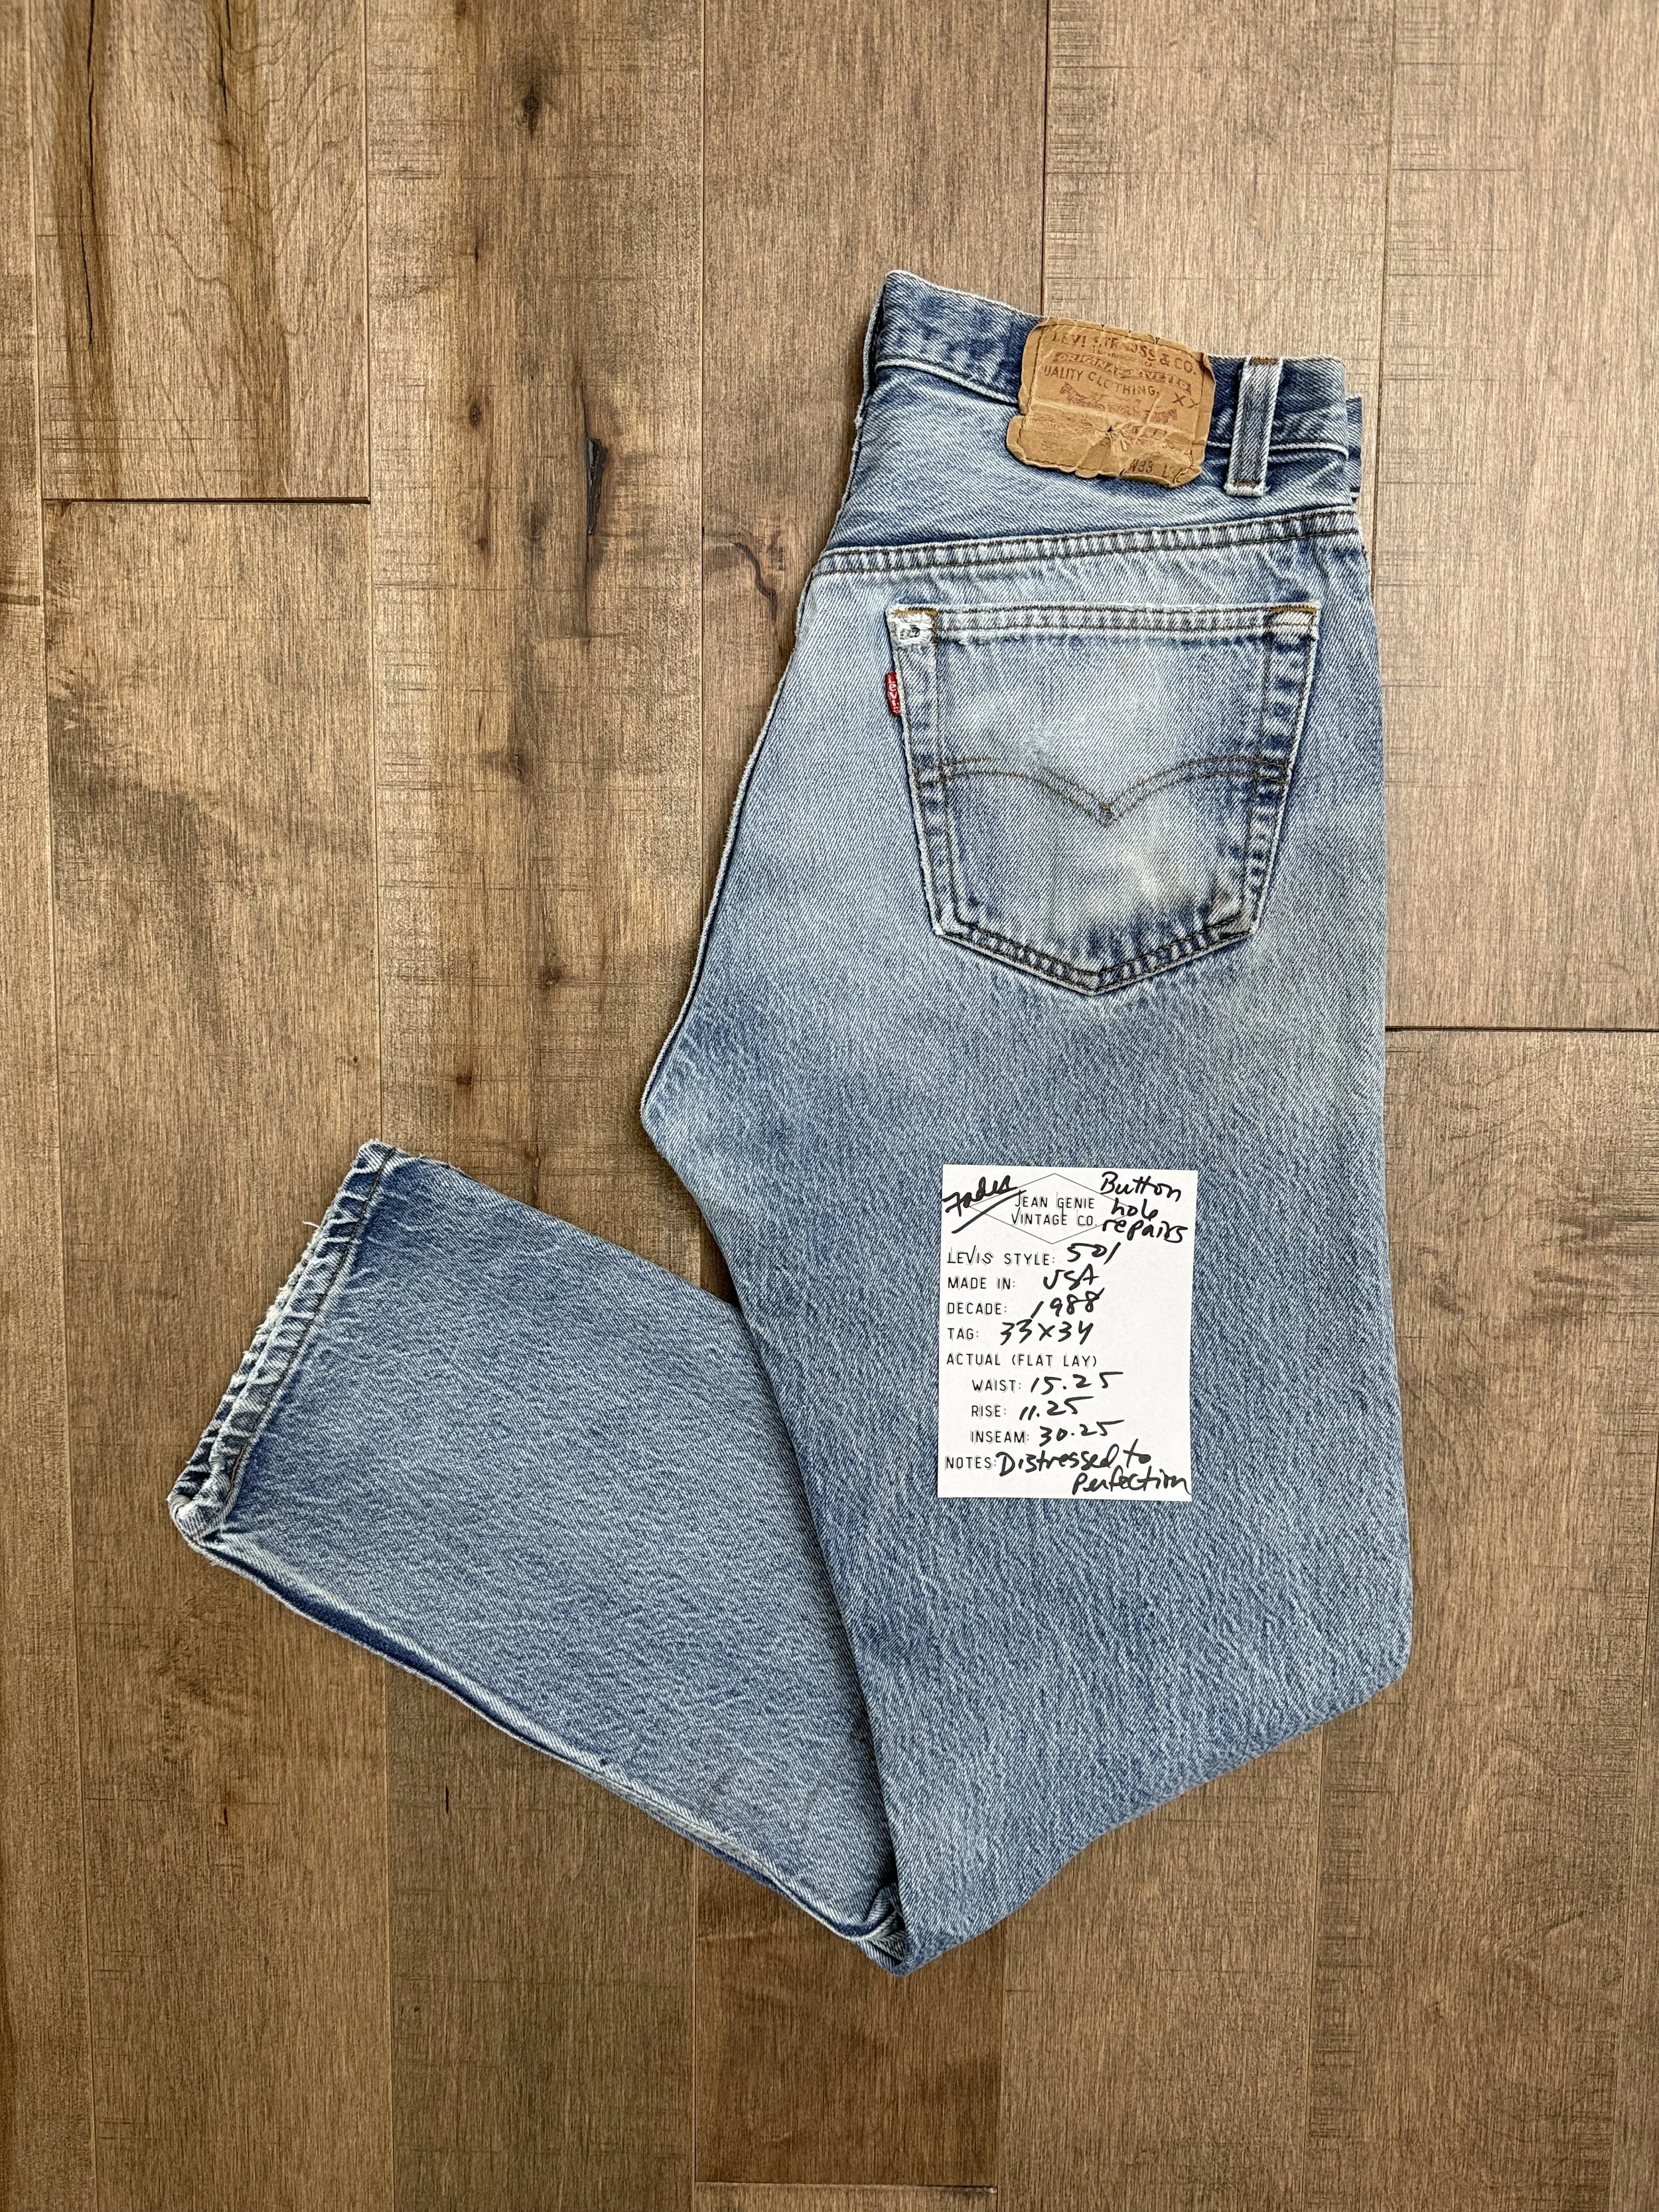 LEVI STRAUSS & CO.
ORIGINAL RIVETED
QUALITY CLOTHING
XX
W33 L
LEVI'S
Fades
Button
hole
repairs
JEAN GENIE
VINTAGE CO.
LEVIS STYLE: 501
MADE IN: USA
DECADE: 1988
TAG: 33x34
ACTUAL (FLAT LAY)
WAIST: 15.25
RISE: 11.25
INSEAM: 30.25
NOTES: Distressed to
perfection